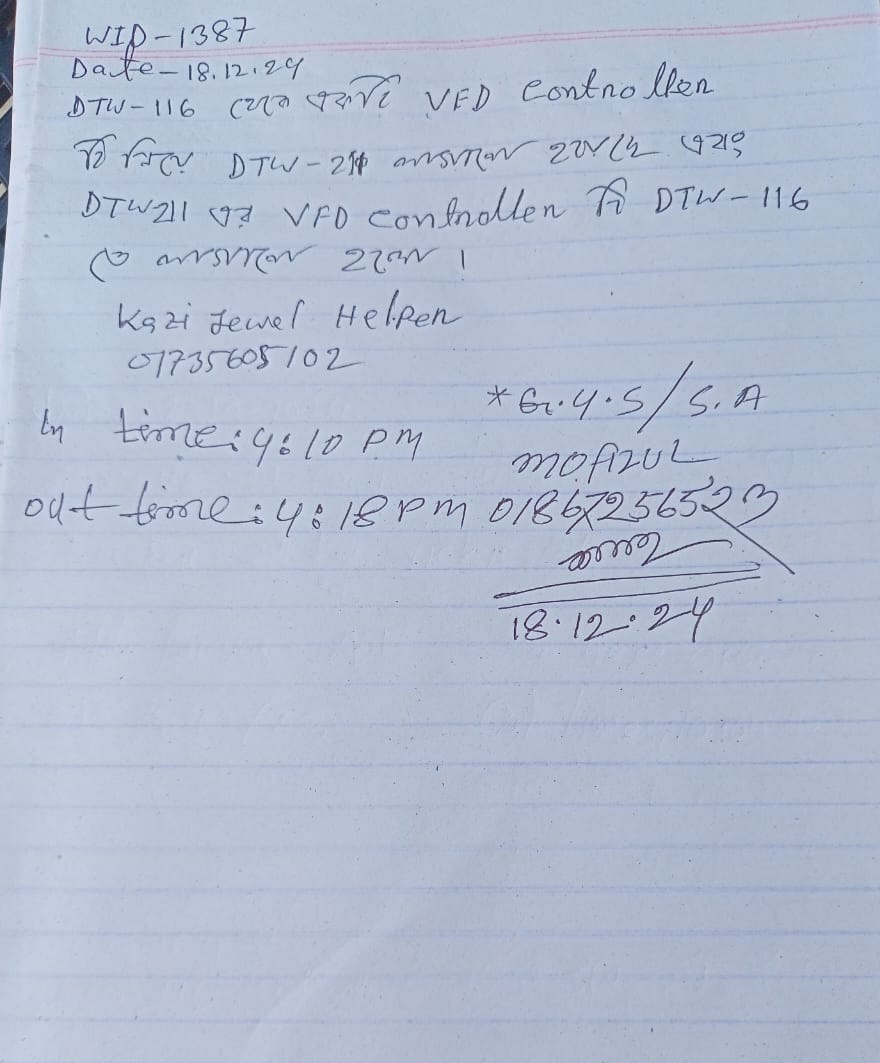 WID-1387
Date-18.12.24
DTW-116 থেকে একটি VFD Controller
টি নিয়ে DTW-211 লাগানো হয়েছে এবং
DTW211 এর VFD controller টি DTW-116
তে লাগানো হলো।
Kazi Jewel Helper
01735605102
In time: 4:10 PM
out time: 4:18 PM
*G.Y.S/S.A
MOFIZUL
01867256523
18.12.24